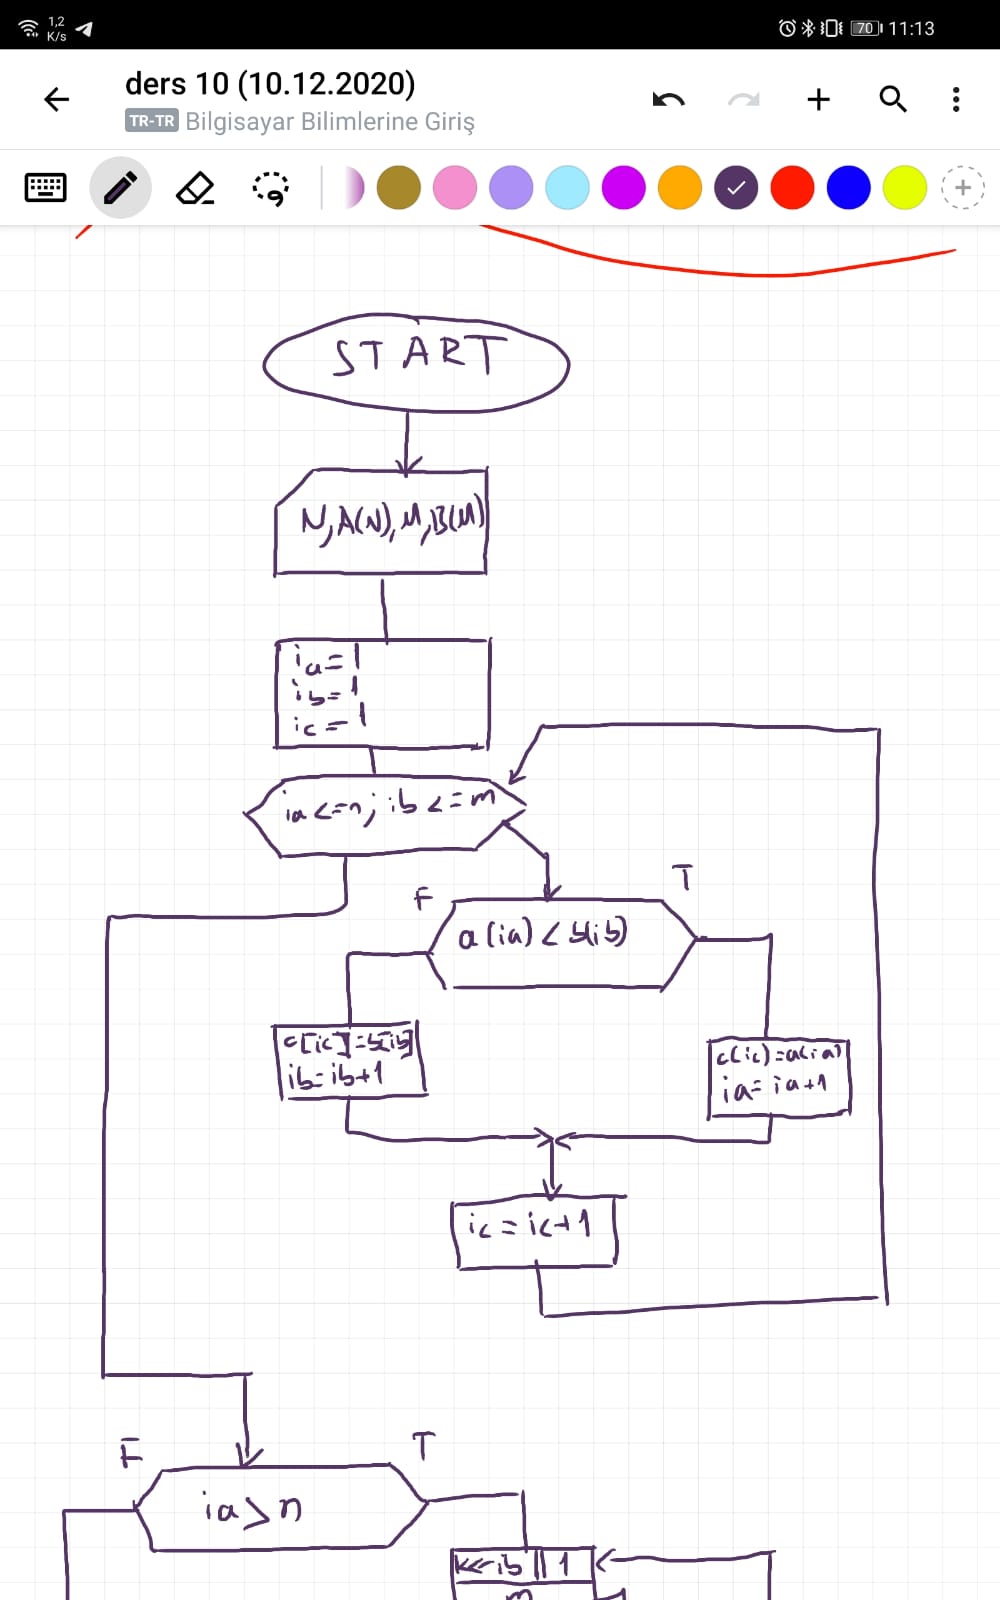 1,2
K/s
70
11:13
ders 10 (10.12.2020)
TR-TR Bilgisayar Bilimlerine Giriş
START
N,A(N),M,B(M)
ia=1
ib=1
ic=1
ia<=n; ib<=m
F
T
a(ia)<b(ib)
c[ic]=b[ib]
ib=ib+1
c(ic)=a(ia)
ia=ia+1
ic=ic+1
F
T
ia>n
ib || 1
m